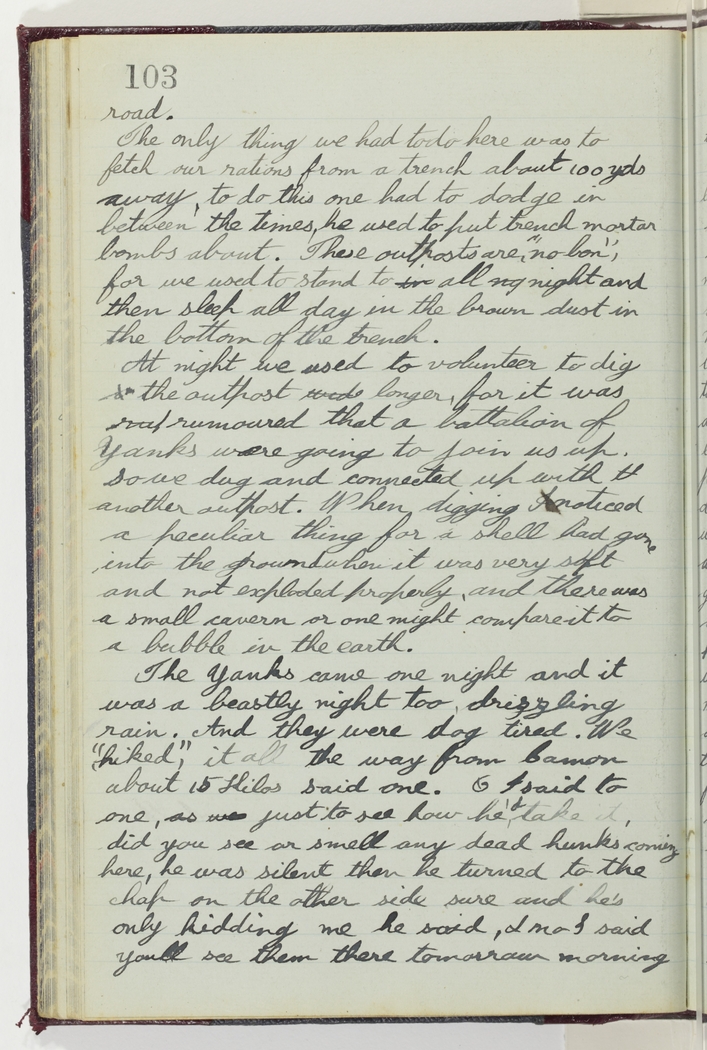 103
road.
The only thing we had todo here was to
fetch our rations from a trench about 100 yds
away, to do this one had to dodge in
between the times, he used to put trench mortar
bombs about. These outposts are, "no bon",
for we used to stand to in all ng night and
then sleep all day in the brown dust in
the bottom of the trench.
At night we used to volunteer to dig
the outpost wide longer, for it was
rumoured that a battalion of
Yanks were going to join us up.
so we dug and connected up with
another outpost. When digging I noticed
a peculiar thing for a shell had gone
into the ground when it was very soft
and not exploded properly, and there was
a small cavern or one might compare it to
a bubble in the earth.
The Yanks came one night and it
was a beastly night too, drizzling
rain. And they were dog tired. We
"hiked", it all the way from Camon
about 15 Kilos said one. O I said to
one, as we just to see how he'd take it,
did you see or smell any dead hunks coming
here, he was silent then he turned to the
chap on the other side sure and he's
only kidding me he said, & no I said
you'll see them there tomorraw morning